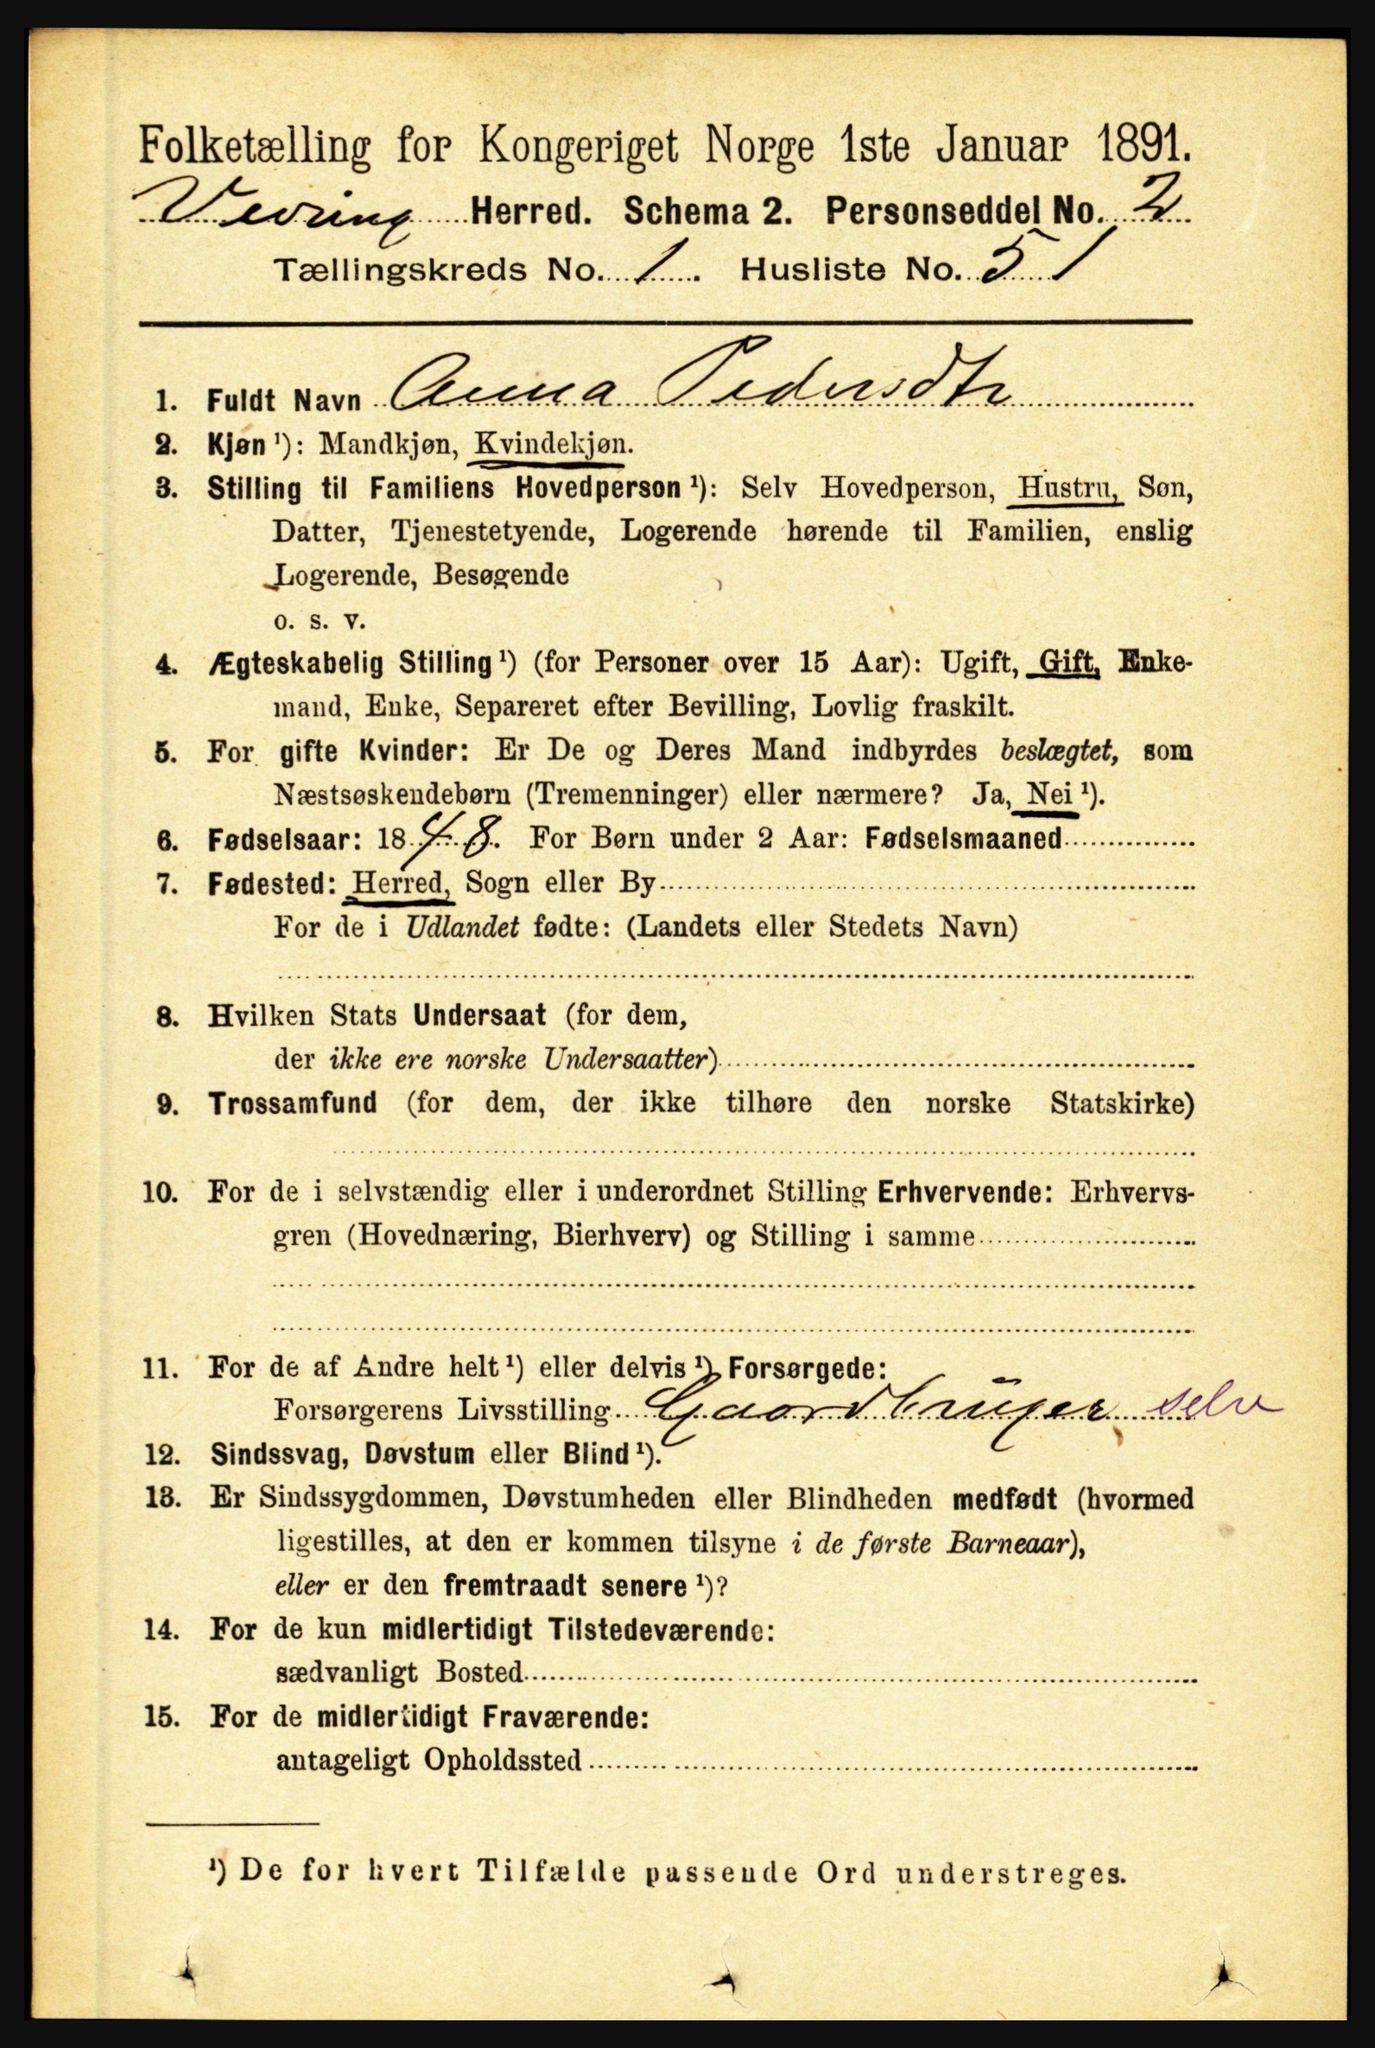 Folketælling for Kongeriget Norge 1ste Januar 1891.
Vevring Herred. Schema 2. Personseddel No. 2
Tællingskreds No. 1. Husliste No. 51
1. Fuldt Navn Anna Pedersdtr
2. Kjøn ¹): Mandkjøn, Kvindekjøn.
3. Stilling til Familiens Hovedperson ¹): Selv Hovedperson, Hustru, Søn,
Datter, Tjenestetyende, Logerende hørende til Familien, enslig
Logerende, Besøgende
o. s. v.
4. Ægteskabelig Stilling ¹) (for Personer over 15 Aar): Ugift, Gift, Enke-
mand, Enke, Separeret efter Bevilling, Lovlig fraskilt.
5. For gifte Kvinder: Er De og Deres Mand indbyrdes beslægtet, som
Næstsøskendebørn (Tremenninger) eller nærmere? Ja, Nei ¹).
6. Fødselsaar: 1848. For Børn under 2 Aar: Fødselsmaaned
7. Fødested: Herred, Sogn eller By
For de i Udlandet fødte: (Landets eller Stedets Navn)
8. Hvilken Stats Undersaat (for dem,
der ikke ere norske Undersaatter)
9. Trossamfund (for dem, der ikke tilhøre den norske Statskirke)
10. For de i selvstændig eller i underordnet Stilling Erhvervende: Erhvervs-
gren (Hovednæring, Bierhverv) og Stilling i samme
11. For de af Andre helt ¹) eller delvis ¹) Forsørgede:
Forsørgerens Livsstilling Gaardbruger selv
12. Sindssvag, Døvstum eller Blind ¹).
13. Er Sindssygdommen, Døvstumheden eller Blindheden medfødt (hvormed
ligestilles, at den er kommen tilsyne i de første Barneaar),
eller er den fremtraadt senere ¹)?
14. For de kun midlertidigt Tilstedeværende:
sædvanligt Bosted
15. For de midlertidigt Fraværende:
antageligt Opholdssted
¹) De for hvert Tilfælde passende Ord understreges.